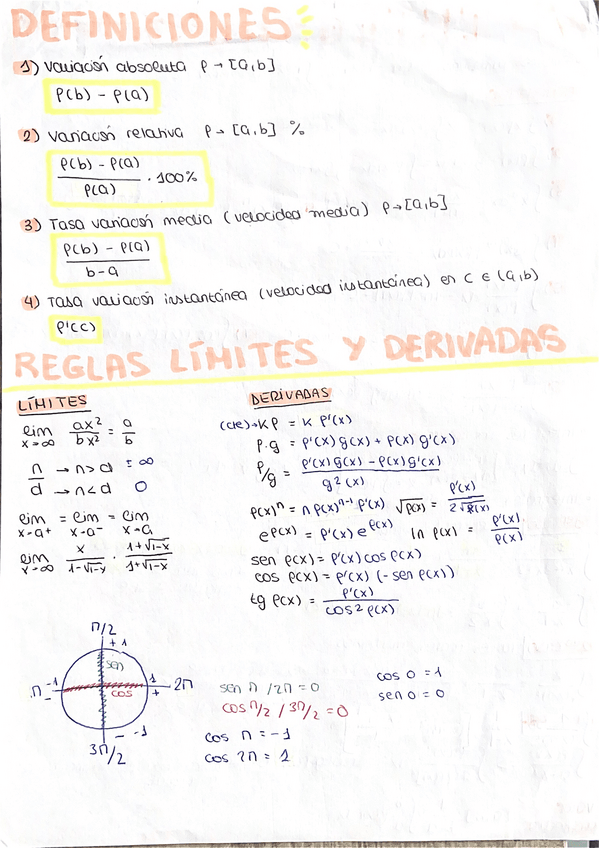 DEFINICIONES
1) Variación absoluta f → [a,b]
f(b) - f(a)
2) Variación relativa f → [a,b] %
f(b) - f(a) / f(a) · 100%
3) Tasa variación media (velocidad media) f → [a,b]
f(b) - f(a) / b - a
4) Tasa variación instantánea (velocidad instantánea) en c ∈ (a,b)
f'(c)
REGLAS LÍMITES Y DERIVADAS
LÍMITES
lim x→∞ ax² / bx² = a / b
n / d → n>d = ∞
→ n<d 0
lim x→a⁺ = lim x→a⁻ = lim x→a
lim x→∞ x / 1-√1-x 1+√1-x / 1+√1-x
DERIVADAS
(cte)→ K f = K f'(x)
f·g = f'(x) g(x) + f(x) g'(x)
f/g = f'(x) g(x) - f(x) g'(x) / g²(x)
f(x)ⁿ = n f(x)ⁿ⁻¹ f'(x) √f(x) = f'(x) / 2√f(x)
e^f(x) = f'(x) e^f(x) ln f(x) = f'(x) / f(x)
sen f(x) = f'(x) cos f(x)
cos f(x) = f'(x) (- sen f(x))
tg f(x) = f'(x) / cos² f(x)
π/2
+ 1
sen
π -1 - cos 1 + 2π
- -1
3π/2
sen π / 2π = 0
cos π/2 / 3π/2 = 0
cos π = -1
cos 2π = 1
cos 0 = 1
sen 0 = 0